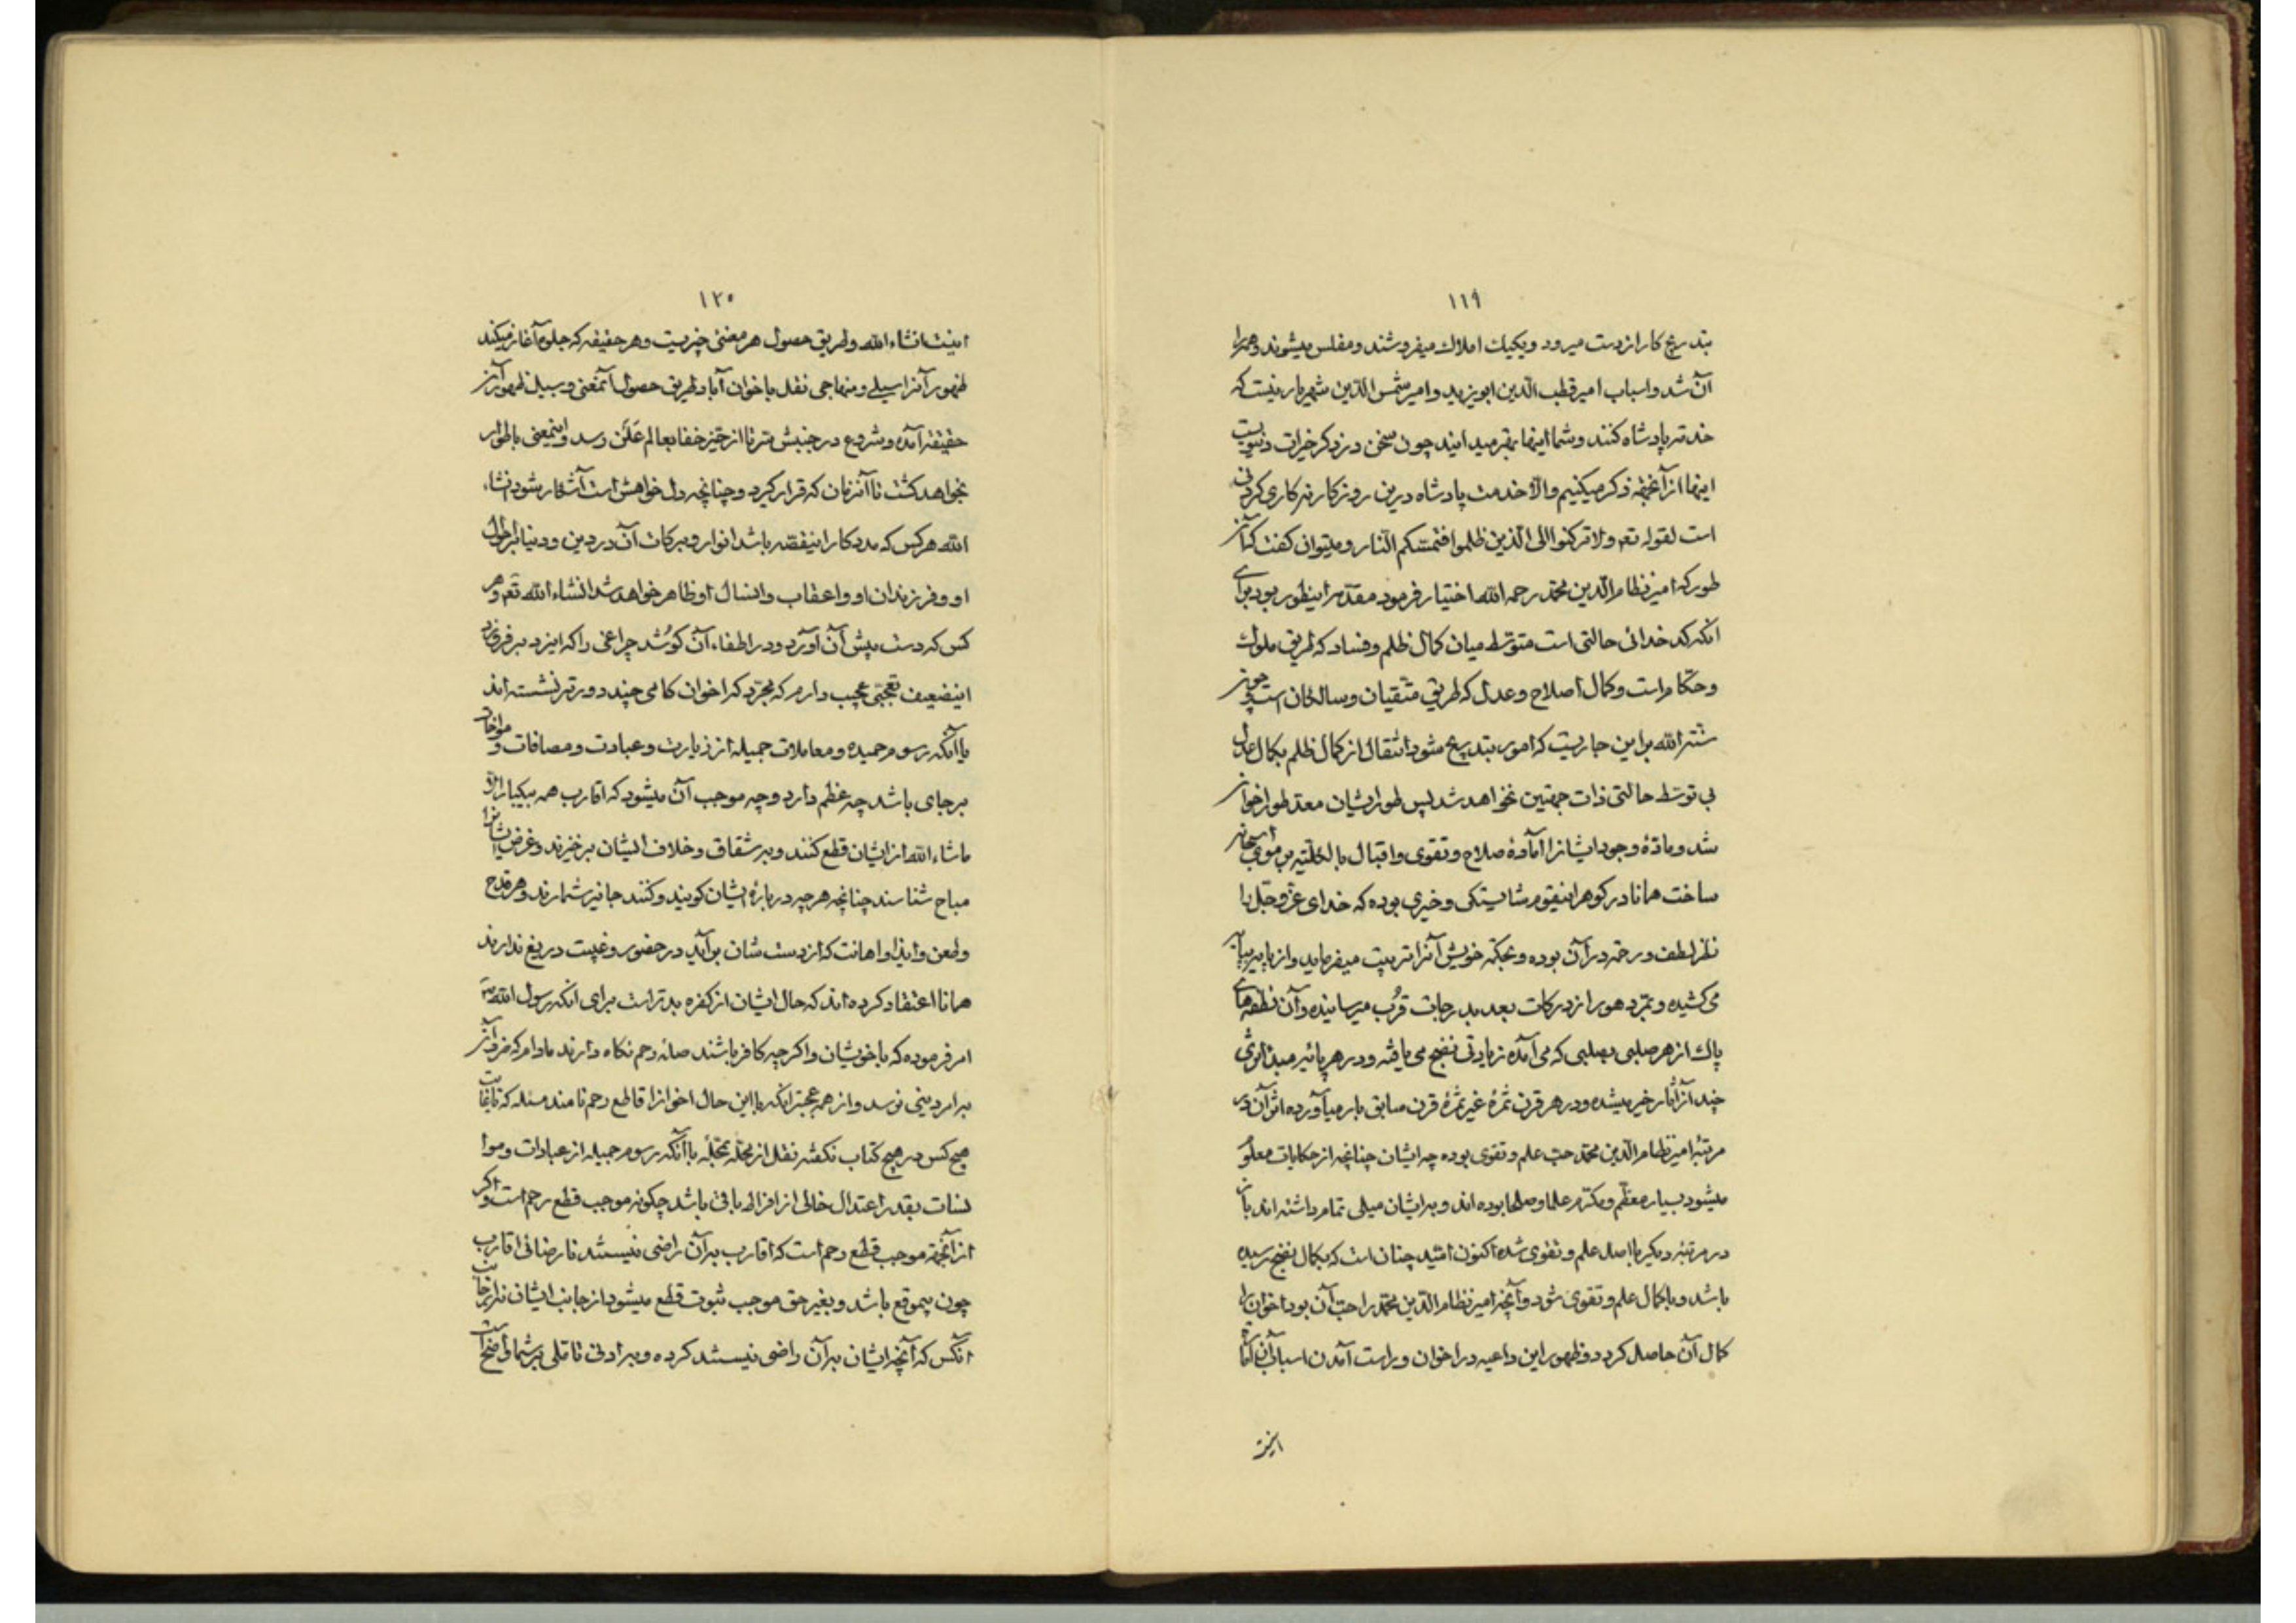 ١١٩
بتدریج کار از دست میرود و یکیک املاک میفروشند و مفلس میشوند و همه را
آن شد و اسباب امیر قطب الدین ابویزید و امیر شمس الدین شهریار نیست که
خدمة پادشاه کنند و شما اینها بهتر میدانید چون سخن در ذکر خیرات دنیویست
اینها از آنجهة ذکر میکنیم والّا خدمت پادشاه درین روزکار نه کاری کردنی
است لقوله تعم ولا ترکنوا الی الّذین ظلموا فتمسّکم النّار و میتوان کفت کناز
طور که امیر نظام الدین محمّد رحمه الله اختیار فرمود مقدّمه اینطور بود برای
انکه کدخدائی حالتی است متوسّط میان کمال ظلم و فساد که طریق ملوک
و حکّام است و کمال اصلاح و عدل که طریق متّقیان و سالکان است چون
سنّة الله برین جاریست که امور بتدریج شود انتقال از کمال ظلم بکمال عدل
بی توسّط حالتی ذات جهتین نخواهد شد پس طور ایشان معدّ طور اخوان
شد و مادّهٔ وجود ایشانرا آمادهٔ صلاح و تقوی و اقبال بالکلّیّه بر
ساخت همانا در کوهر اینقوم شایستکی و خیری بوده که خدای عزّ و جلّ را
نظر لطف و رحمة در آن بوده و بحکمة خویش آنرا تربیت میفرماید و از پایه بپایه
می کشیده و بتمرّد هور از درکات بعد بدرجات قرب میرسانیده و آن نطفه های
پاک از هر صلبی بصلبی که می آمده زیادتی نضج می یافته و در هر پایه مبدا اثری
چند از آثار خیر میشده و در هر قرن ثمرهٔ غیر ثمرهٔ قرن سابق بار میآورده اثر آن در
مرتبهٔ امیر نظام الدین محمّد حبّ علم و تقوی بوده چه ایشان چنانچه از حکایات معلوم
میشود بسیار معظّم و مکرّم علما و صلحا بوده اند و بدیشان میلی تمام داشته اند باز
در مرتبه دیکر با اصل علم و تقوی شده اکنون امّید چنان است که بکمال نضج رسیده
باشد و با کمال علم و تقوی شود و آنچه امیر نظام الدین محمّد را حبّ آن بود اخوان را
کمال آن حاصل کردد و ظهور این داعیه در اخوان و راست آمدن اسباب آن
١٢٠
اینست انشاء الله و طریق حصول هر معنی چیزیست و هر حقیقه که جلوه آغاز میکند
ظهور آنرا سبیلی و منهاجی نقل باخوان آباد طریق حصول آنمعنی و سبیل ظهور آن
حقیقة آمده و شروع در جنبش تر تا از حیّز خفا بعالم عَلَن رسد و اینمعنی باطوار
بخواهد کشت تا آنزمان که قرار کیرد و چنانچه دل خواهش است آشکار شود انشاء
الله هر کس که مددکار اینقضیّه باشد انوار و برکات آن در دین و دنیا بر احوال
او و فرزندان او و اعقاب و انسال او ظاهر خواهد شد انشاء الله تعم و هر
کس که دست پیش آن آورد و در اطفاء آن کوشد چراغی را که ایزد بر فروزد
اینضعیف تعجّبی عجیب دارم که مجرّد که اخوان کامی چند دورتر نشسته اند
با آنکه رسوم حمیده و معاملات جمیله از زیارت و عیادت و مصافات و مواخات
بر جای باشد چه عظم دارد و چه موجب آن میشود که اقارب همه بیکبار الّا
ماشاء الله از ایشان قطع کنند و بر شقاق و خلاف ایشان برخیزند و غرض ایشانرا
مباح شناسند چنانچه هر چه در بارهٔ ایشان کویند و کنند جایز شمارند و هر قدح
و طعن و ایذا و اهانت که از دست شان بر آید در حضور و غیبت دریغ ندارند
همانا اعتقاد کرده اند که حال ایشان از کفره بدتر است برای انکه رسول الله ص
امر فرموده که با خویشان و اکر چه کافر باشند صله رحم نکاه دارند مادام که ضرر آن
بر امر دینی نرسد و از همه عجبتر انکه با این حال اخوانرا قاطع رحم نامند مسئله که
هیچ کس در هیچ کتاب نکفته نقل از محلّه بمحلّه با آنکه رسوم جمیله از عیادات و موا
نسات بقدر اعتدال خالی از افراط باقی باشد چکونه موجب قطع رحم است و اکر
از آنجهة موجب قطع رحم است که اقارب بر آن راضی نیستند نارضائی اقارب
چون بیموقع باشد و بغیر حق موجب ثبوت قطع میشود از جانب ایشان نه از جانب
آنکس که آنچه ایشان بر آن راضی نیستند کرده و بر ادنی تاملی بر شما واضح است